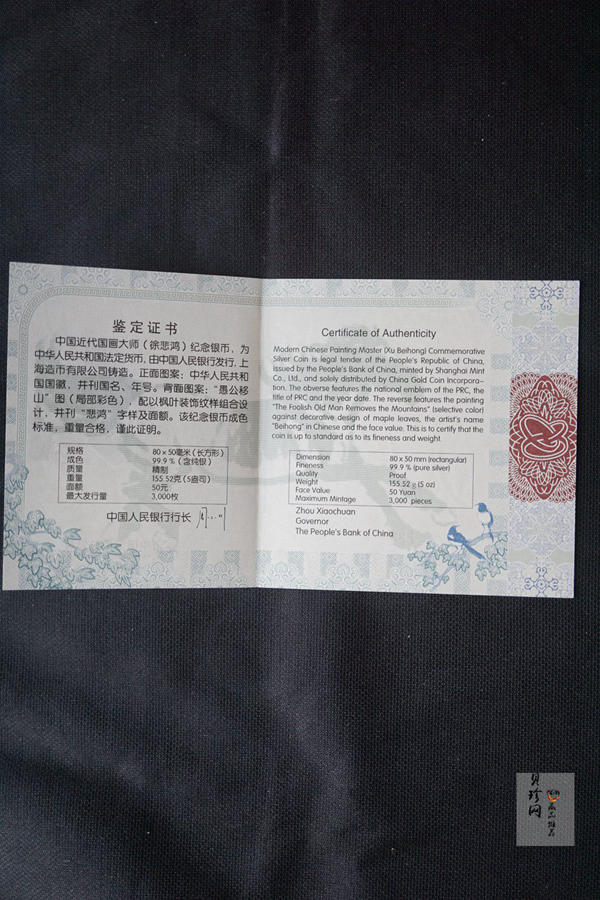 鉴定证书
中国近代国画大师（徐悲鸿）纪念银币，为
中华人民共和国法定货币，由中国人民银行发行，上
海造币有限公司铸造。正面图案：中华人民共和
国国徽，并刊国名、年号。背面图案：“愚公移
山”图（局部彩色），配以枫叶装饰纹样组合设
计，并刊“悲鸿”字样及面额。该纪念银币成色
标准，重量合格，谨此证明。
规格 80×50毫米（长方形）
成色 99.9％（含纯银）
质量 精制
重量 155.52克(5盎司)
面额 50元
最大发行量 3,000枚
中国人民银行行长
Certificate of Authenticity
Modern Chinese Painting Master (Xu Beihong) Commemorative
Silver Coin is legal tender of the People's Republic of China,
issued by the People's Bank of China, minted by Shanghai Mint
Co., Ltd., and solely distributed by China Gold Coin Incorpora-
tion. The obverse features the national emblem of the PRC, the
title of PRC and the year date. The reverse features the painting
"The Foolish Old Man Removes the Mountains" (selective color)
against decorative design of maple leaves, the artist's name
"Beihong" in Chinese and the face value. This is to certify that the
coin is up to standard as to its fineness and weight.
Dimension 80 x 50 mm (rectangular)
Fineness 99.9 % (pure silver)
Quality Proof
Weight 155.52 g (5 oz)
Face Value 50 Yuan
Maximum Mintage 3,000 pieces
Zhou Xiaochuan
Governor
The People's Bank of China
贝珍网
藏品推荐